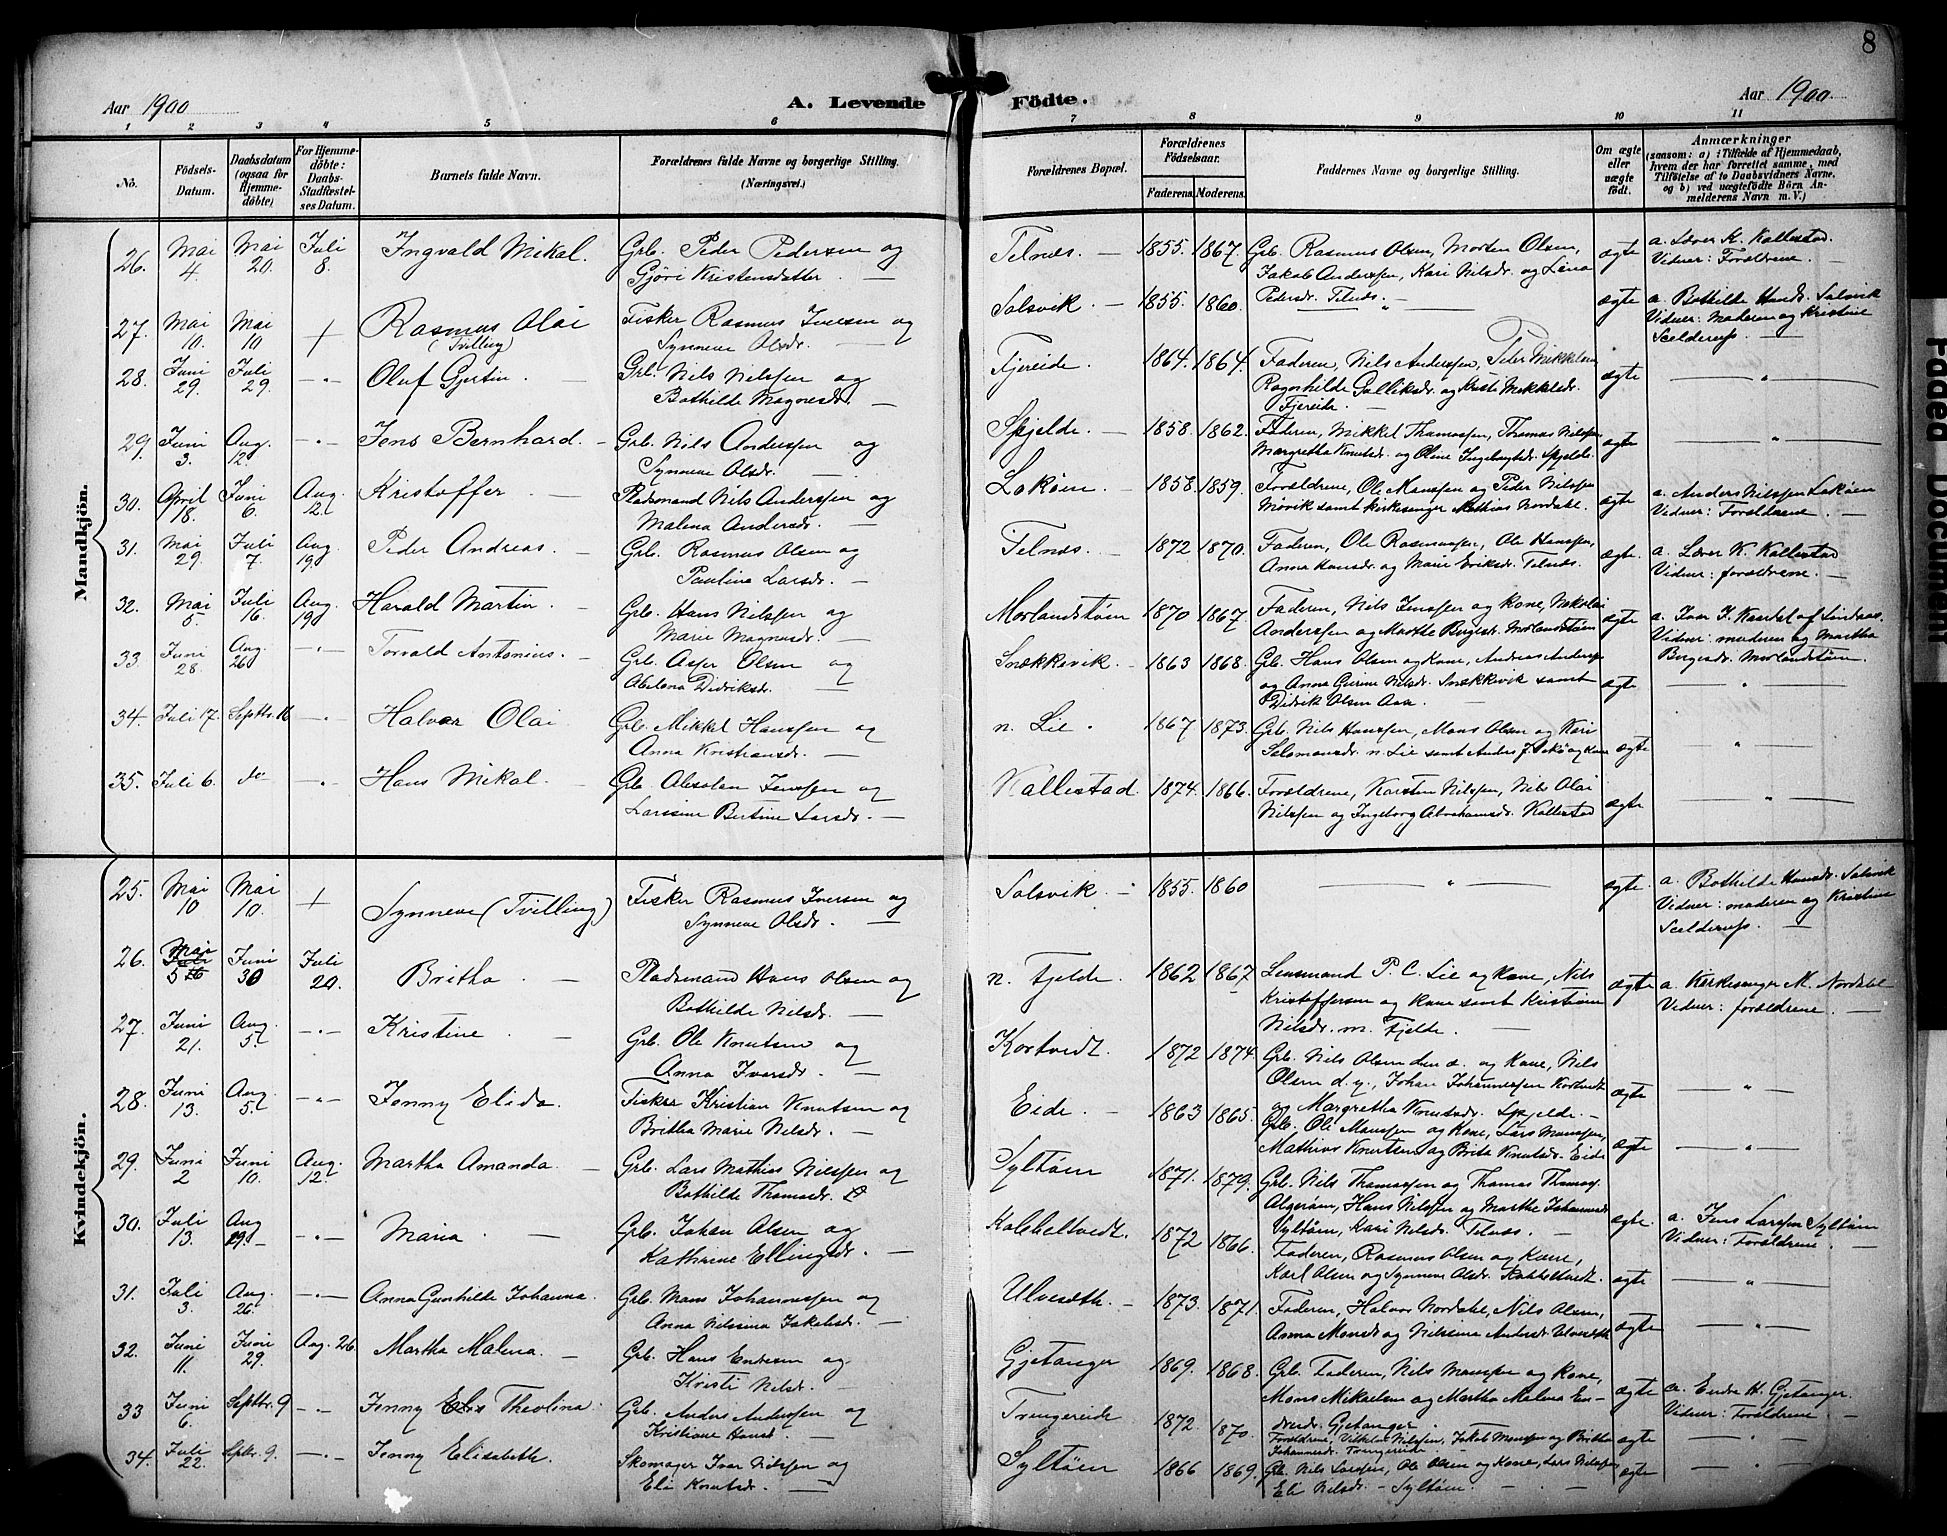 8
Aar 1900 A. Levende Födte. Aar 1900
1 2 3 4 5 6 7 8 9 10 11
No. Födsels-Datum. Daabsdatum (ogsaa for Hjemme-döbte) For Hjemme-döbte: Daabs-Stadfæstelses Datum. Barnets fulde Navn. Forældrenes fulde Navne og borgerlige Stilling. (Næringsvei.) Forældrenes Bopæl. Forældrenes Födselsaar. Faderens. Moderens. Faddernes Navne og borgerlige Stilling. Om ægte eller uægte födt. Anmærkninger (saasom: a) i Tilfælde af Hjemmedaab, hvem der har forrettet samme, med Tilföielse af to Daabsvidners Navne, og b) ved uægtefödte Börn Anmelderens Navn m. V.)
Mandkjön.
26. Mai 4. Mai 20. Juli 8. Ingvald Mikal. Grb. Peder Pedersen og Gjöri Kristensdatter — Telnæs. — 1855. 1867. Grb. Rasmus Olsen, Morten Olsen, Jakob Anderssen, Kari Nilsdr. og Lina Pedersdr. Telnæs. — ægte a. Lærer K. Kallestad. Vidner: Forældrene. —
27. Mai 10. Mai 10 + Rasmus Olai (Tvilling) Fisker Rasmus Iversen og Synneve Olsdr. — Solsvik. — 1855. 1860. — " — ægte a. Bothilde Hansdr. Solsvik Vidner: Moderen og Kristine Scelderup. —
28. Juni 29. Juli 29. — " — Oluf Gjertin. — Grb. Nils Nilssen og Bothilde Magnesdr. — Fjereide. 1864. 1864. Faderen, Nils Anderssen, Peder Mikkelsen Ragnhilde Galliksdr. og Kristi Mikkelsdr. Fjereide. — ægte — " —
29. Juni 3. Aug. 12. — " — Jens Bernhard. — Grb. Nils Anderssen og Synneve Olsdr. — Spjelde. — 1858. 1862. Faderen, Mikkel Thomassen, Thomas Nilssen, Margretha Knutsdr. og Oline Ingebrigtsdr. Spjelde. ægte — " —
30. April 18. Juni 6. Aug. 12. Kristoffer — Pladsmand Nils Anderssen og Malena Andersdr. — Loköen. — 1858. 1859. Forældrene, Ole Monssen og Peder Nilssen Mövik samt kirkesanger Mathias Nordahl. ægte a. Anders Nilssen Loköen Vidner: Forældrene. —
31. Mai 29. Juli 7. Aug. 19. Peder Andreas. — Grb. Rasmus Olsen og Paulina Larsdr. — Telnæs. — 1872 1870. Faderen, Ole Rasmussen, Ole Hanssen, Anna Hansdr. og Marie Eriksdr. Telnæs. ægte a. Lærer K. Kallestad Vidner: forældrene. —
32. Mai 5. Juli 16. Aug. 19. Harald Martin. — Grb. Hans Nilssen og Marie Magnesdr. — Morlandstöen 1870 1867. Faderen, Nils Jenssen og kone, Nikolai Anderssen og Marthe Bergesdr. Morlandstöen ægte a. Ivar J. Kvartel af Lindaas. Vidner: moderen og Martha Bergesdr. Morlandstöen.
33. Juni 28. Aug. 26 — " — Torvald Antonius. — Grb. Asser Olsen og Abelena Didriksdr. — Snekkevik. — 1863 1868. Grb. Hans Olsen og Kone, Andreas Anderssen og Anna Gurine Nilsdr. Snekkevik samt Didrik Olsen Aase. — ægte — " —
34. Juli 17. Septbr. 16 — " — Halvor Olai Grb. Mikkel Hanssen og Anna Kristiansdr. — n. Lie. 1867 1873. Grb. Nils Hanssen, Mons Olsen og Kari Salomonsdr. n. Lie samt Anders J. og Kone ægte — " —
35. Juli 6. do — " — Hans Mikal. — Grb. Absolon Jenssen og Larssine Bertine Larsdr. — Kallestad. 1874. 1866. Forældrene, Karsten Nilssen, Nils Olai Nilssen og Ingeborg Abrahamsdr. Kallestad ægte — " —
Kvindekjön.
25. Mai 10 Mai 10. + Synneve (Tvilling) Fisker Rasmus Iversen og Synneve Olsdr. — Solsvik. — 1855. 1860 — " — ægte. a. Bothilde Hansdr. Solsvik Vidner: moderen og Kristine Scelderup. —
26. Mai 5 Juni 30 Juli 20. Britha — Pladsmand Hans Olsen og Bothilde Nilsdr. — n. Fjelde. 1862 1867. Lensmand P. C. Lie og Kone, Nils Kristoffersen og Kone samt Kristian Nilsdr. m. Fjelde. — ægte a. Kirkesanger M. Nordahl Vidner: forældrene. —
27. Juni 21. Aug. 5. — " — Kristine. Grb. Ole Knutsen og Anna Ivarsdr. — Kortvedt. 1872 1874. Grb. Nils Olsen den æ. og Kone, Nils Olsen d. y., Johan Johannessen Kortvedt og Margretha Knutsdr. Spjelde. — ægte — " —
28. Juni 13. Aug. 5. — " — Jenny Elida. Fisker Kristian Knutsen og Britha Marie Nilsdr. — Eide. — 1863 1865. Grb. Ole Monssen og Kone, Lars Monssen, Mathias Knutsen og Brita Knutsdr. Eide ægte — " —
29. Juni 2 Juni 10. Aug. 12. Martha Amanda. — Grb. Lars Mathias Nilssen og Bothilde Thomasdr. — Syltöen 1871. 1879. Grb. Nils Thomassen og Thomas Thomass. Algeröen, Hans Nilssen og Marthe Johannesdr. Syltöen, Kari Nilsdr. Telnæs. — ægte. a. Jens Larssen Syltöen Vidner: Forældrene. —
30. Juli 13. Aug 19. — " — Maria — Grb. Johan Olsen og Kathrine Ellingsdr. — Kobbeltvedt. 1872 1866. Faderen, Rasmus Olsen og Kone, Karl Olsen og Synneve Olsdr. Kobbeltvedt. ægte — " —
31. Juli 3. Aug. 26. — " — Anna Gunhilde Johanna. Grb. Mons Johannessen og Anna Nilsina Jakobsdr. — Ulveseth. — 1873. 1871. Faderen, Halvor Nordahl, Nils Olsen, Anna Monsdr. og Nilsina Andersdr. Ulveseth ægte — " —
32. Juni 11. Juni 29. Aug. 26. Martha Malena. — Grb. Hans Endresen og Kristi Nilsdr. — Gjetanger 1869. 1868. Grb. Faderen, Nils Monssen og Kone, Mons Mikkelsen og Martha Malena Endresdr. Gjetanger ægte a. Endre H. Gjetanger. Vidner: Forældrene. —
33 Juni 6. Septbr. 9 — " — Jenny Elis Theolina. Grb. Anders Anderssen og Kristiane Hansdr. — Trengereide 1872 1870. Forældrene, Vilhelm Nilssen, Jakob Monssen og Britha Johannesdr. Trengereide. — ægte — " —
34. Juli 22. Spbr. 9. — " — Jenny Elisabeth. Skomager Ivar Nilssen og Eli Knutsdr. — Syltöen 1866 1869. Grb. Nils Larssen, Ole Olsen og Kone, Lars Nilssen, Eli Nilsdr. — Syltöen. ægte — " —
Faded Document